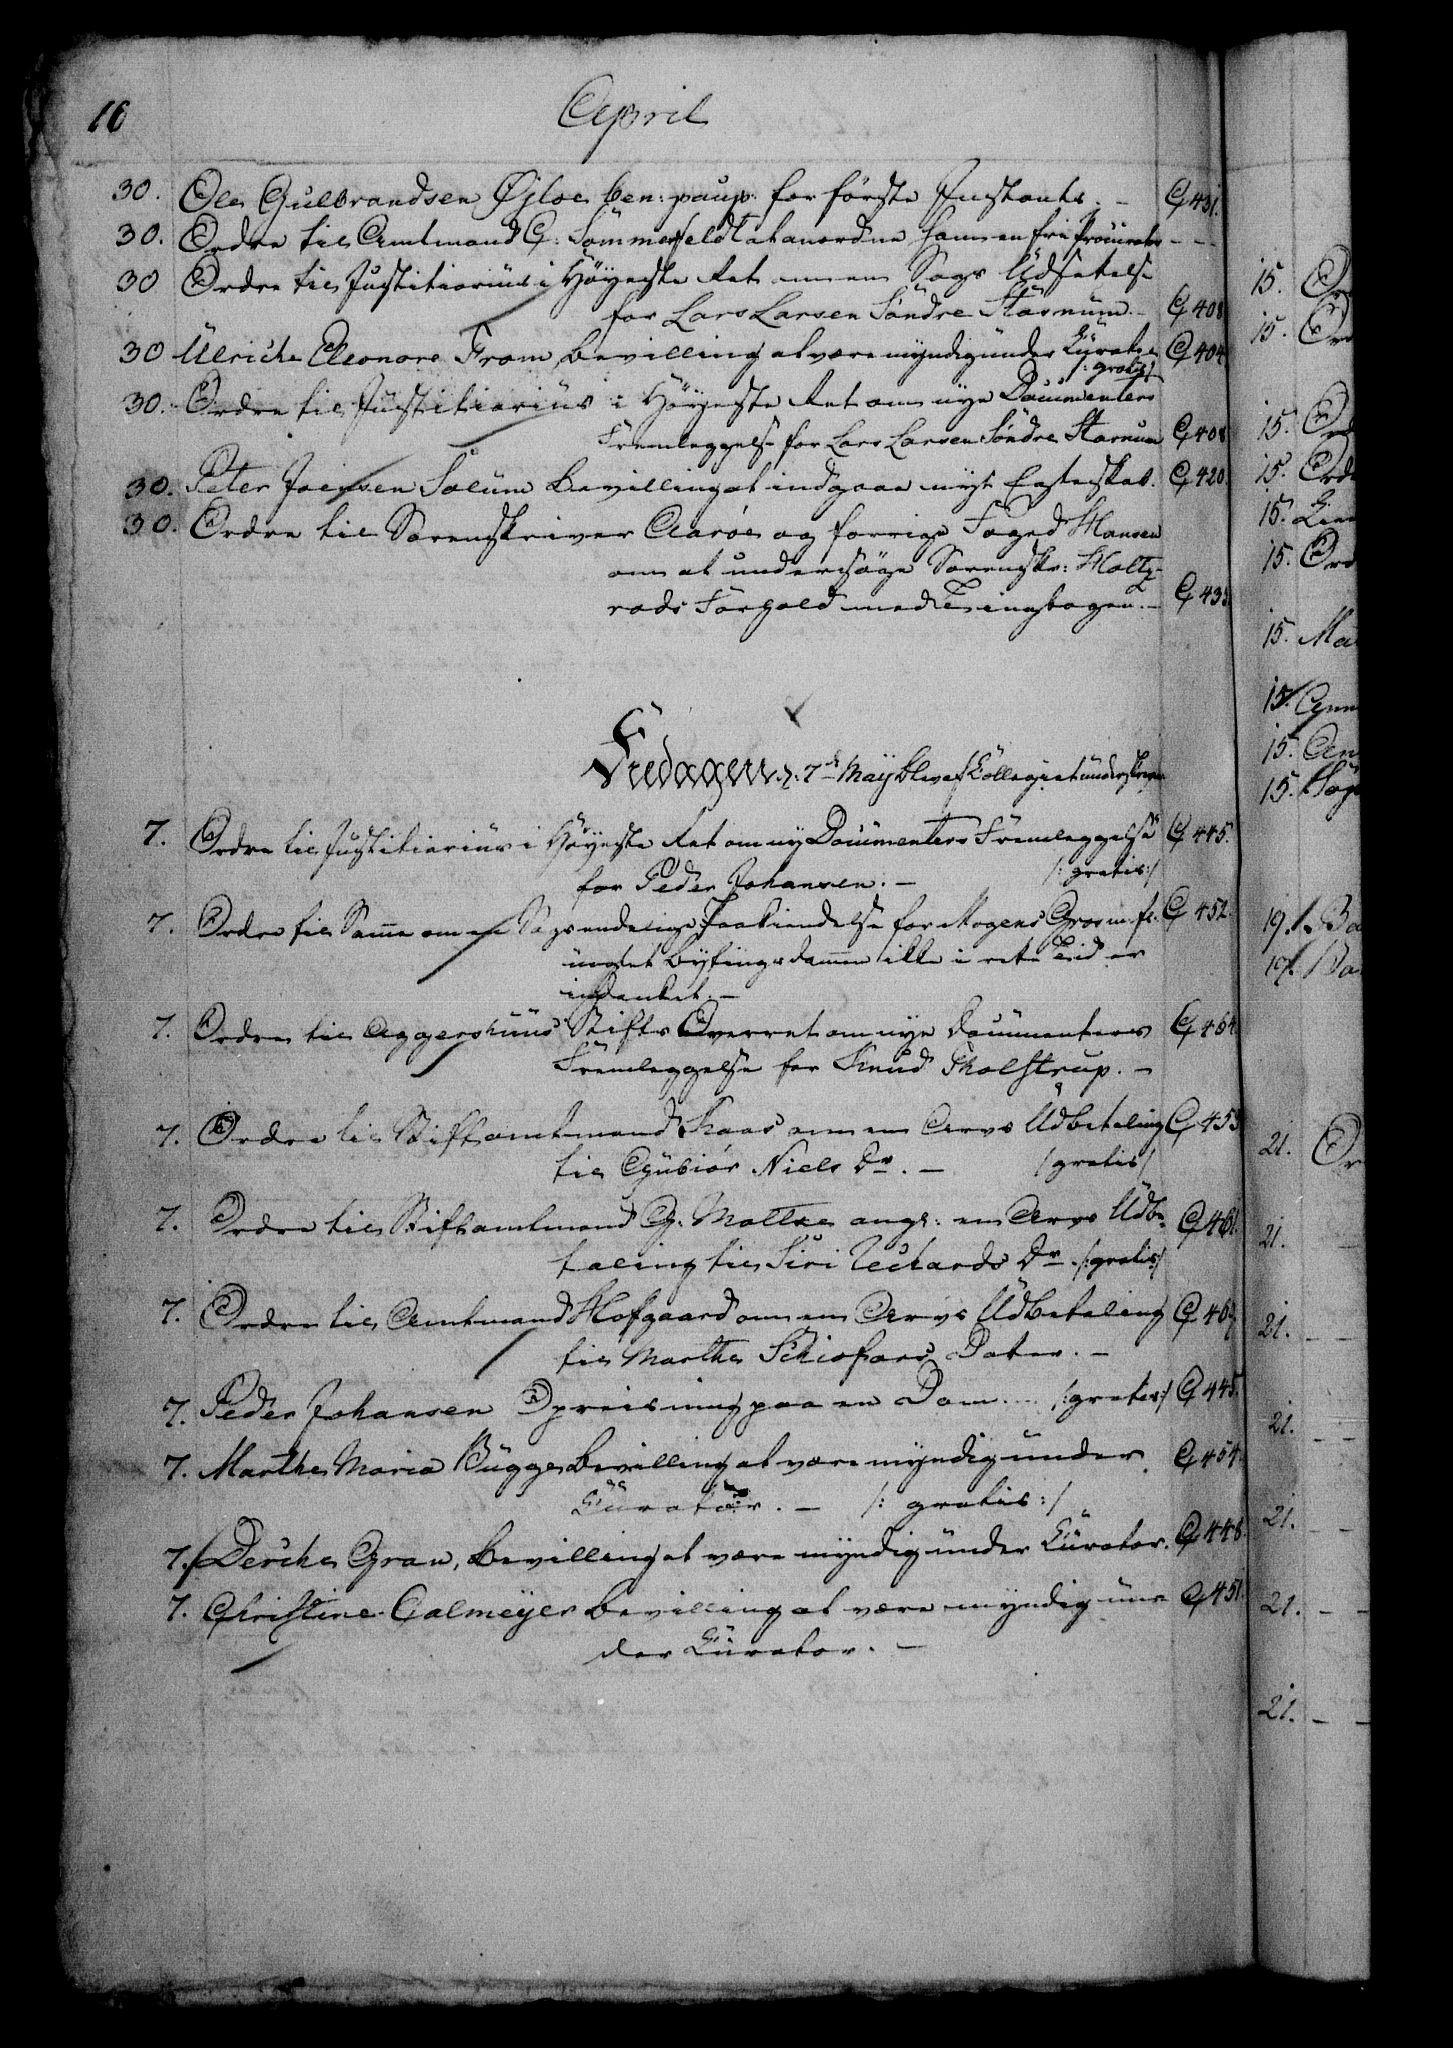 16
April
30. Ole Gulbrandsen Øjloe ben: paup: for første Instants. - G 431.
30. Ordre til Amtmand G: Sommerfeldt at anordne ham en fri Procurator - -
30 Ordre til Justitiarius i Høyeste Ret om en Sags Udsættelse
for Lars Larsen Søndre Starum. - G 408
30 Ulriche Eleonore From, bevilling at være myndig under Curator G 404
/: gratis :/
30. Ordre til Justitiarius i Høyeste Ret om nye Documenters
Fremleggelse for Lars Larsen Søndre Starum G 408
30. Peter Joensen Solum bevilling at indgaae nyt Egteskab. G 420
30. Ordre til Sorenskriver Aarøe og forrige Foged Hansen
om at undersøge Sorenskr: Holtz-
rods Forhold med Tingbogen. - G 433
Fredagen d: 7de May blev af Collegiet underskrevet
7. Ordre til Justitiarius i Høyeste Ret om ny Documenters Fremleggelse G 445.
for Peder Johansen. - /: gratis :/
7. Ordre til Samme om en Sags endelige Paakiendelse for Mogens Groe m: fl: G 452.
uagtet bytingsdommen ikke i rette Tid er
indanket. -
7. Ordre til Aggershuus Stifts Overret om nye Documenters G 464
Fremleggelse for Knud Tholstrup. -
7. Ordre til Stiftamtmand Kaas om en Arvs Udbetaling G 453
til Gubiør Niels Dr. - /: gratis :/
7. Ordre til Stiftamtmand G. Moltke ang: en Arvs Udbe- G 461.
taling til Siri Dr. /: gratis :/
7. Ordre til Amtmand Hofgaard om en Arvs Udbetaling G 469
til Marthe Datter. -
7. Peder Johansen Opreisning paa en Dom ... /: gratis :/ G 445.
7. Marthe Maria Bugge, bevilling at være myndig under G 454.
Curator. - /: gratis :/
7. Derche Gran, bevilling at være myndig under Curator. G 448.
7. Christine Calmeyer bevilling at være myndig un- G 451.
der Curator. -
15.
15.
15.
15.
15.
15.
15.
15.
15.
15.
19.
19.
21.
21.
21.
21.
21.
21.
21.